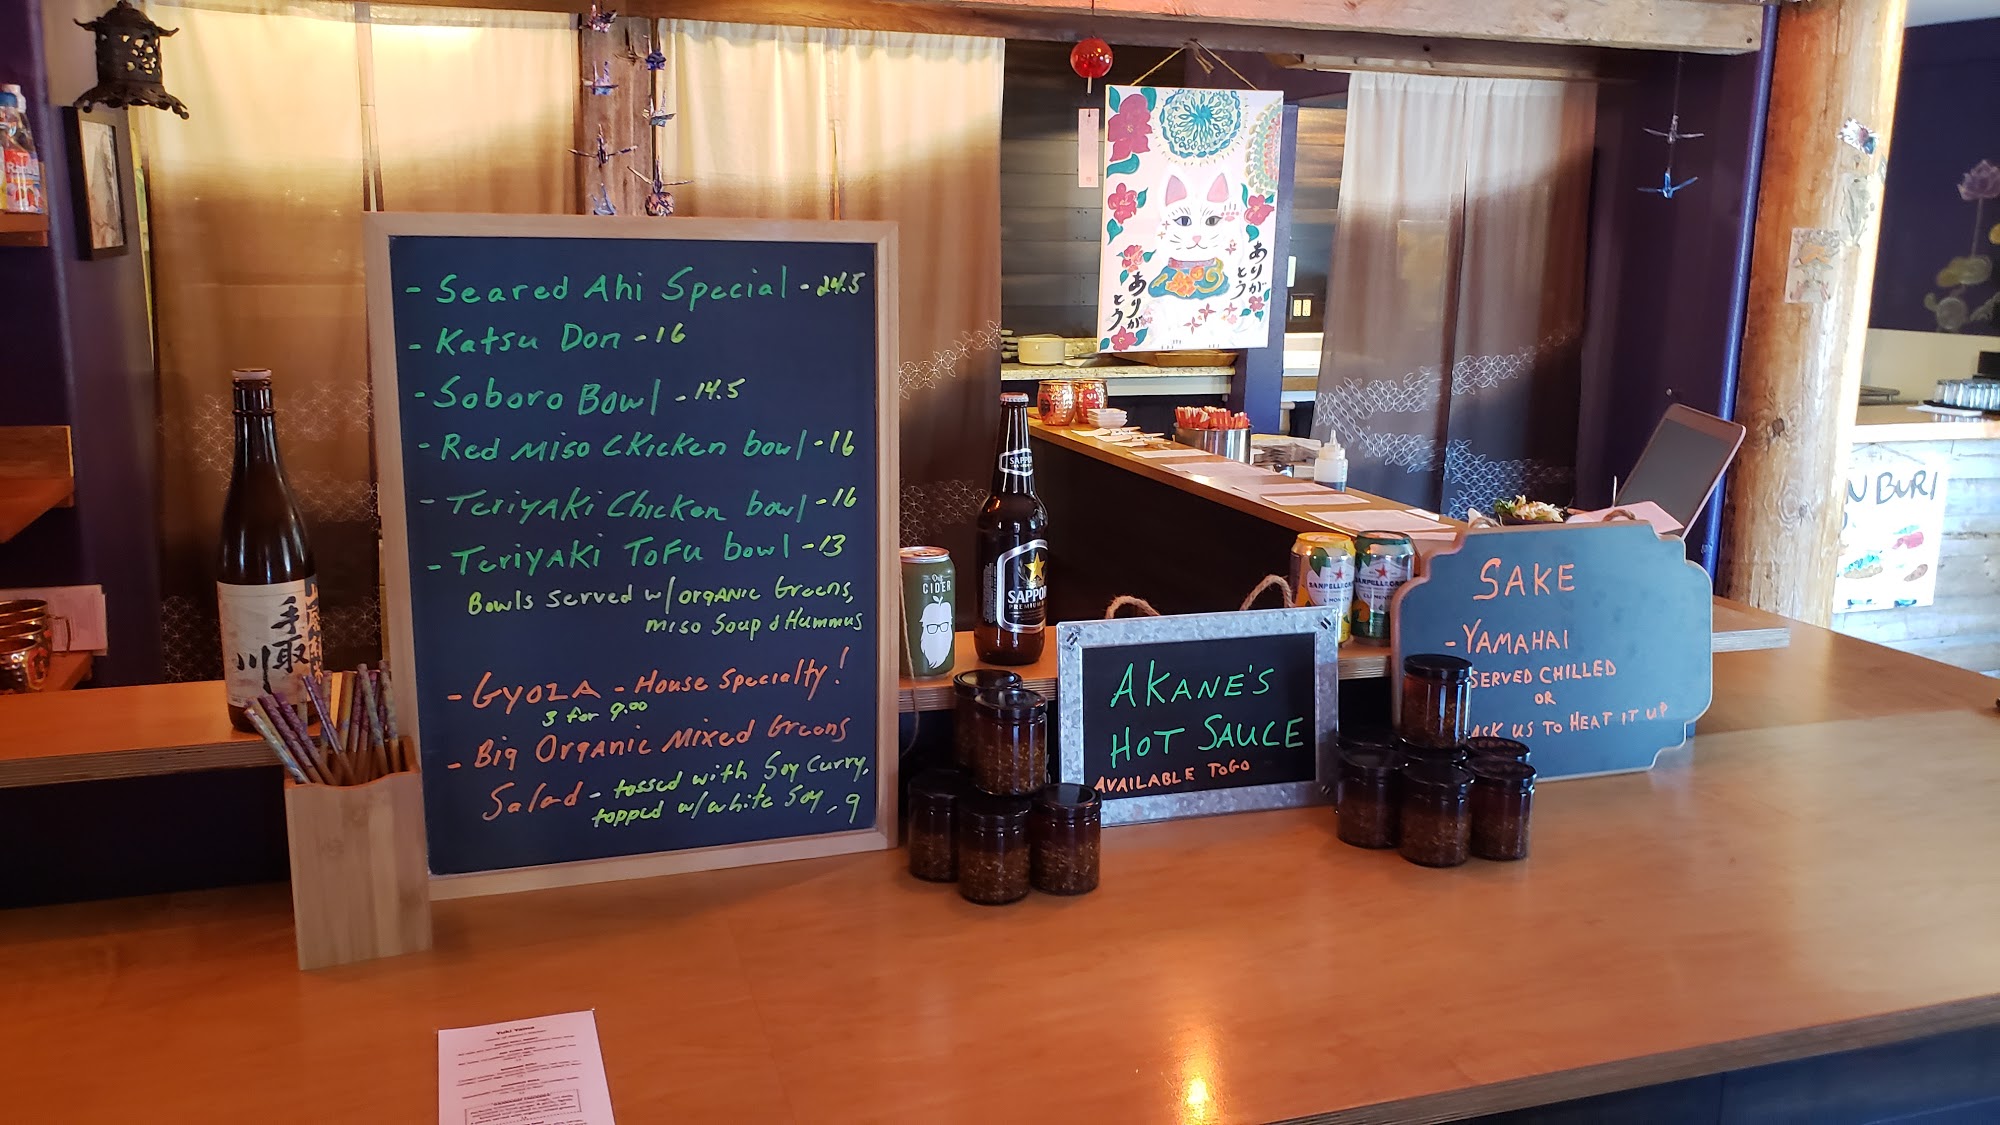 - Seared Ahi Special - 24.5
- Katsu Don - 16
- Soboro Bowl - 14.5
- Red Miso Chicken bowl - 16
- Teriyaki Chicken bowl - 16
- Teriyaki Tofu bowl - 13
Bowls served w/organic Greens,
miso Soup & Hummus
- Gyoza - House Specialty!
3 for 9.00
- Big Organic Mixed Greens
Salad - tossed with Soy Curry,
topped w/white Soy, 9
手取
川
CIDER
SAPPORO
PREMIUM
SANPELLEGRINO
AKANE'S
HOT SAUCE
AVAILABLE TOGO
SAKE
- YAMAHAI
SERVED CHILLED
OR
ASK US TO HEAT IT UP
ありが
とう
ありが
とう
N BURI
Yuki Yama